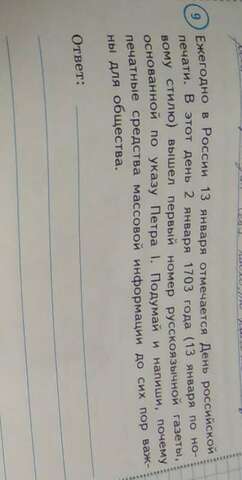 9 Ежегодно в России 13 января отмечается День российской
печати. В этот день 2 января 1703 года (13 января по но-
вому стилю) вышел первый номер русскоязычной газеты,
основанной по указу Петра I. Подумай и напиши, почему
печатные средства массовой информации до сих пор важ-
ны для общества.
Ответ: